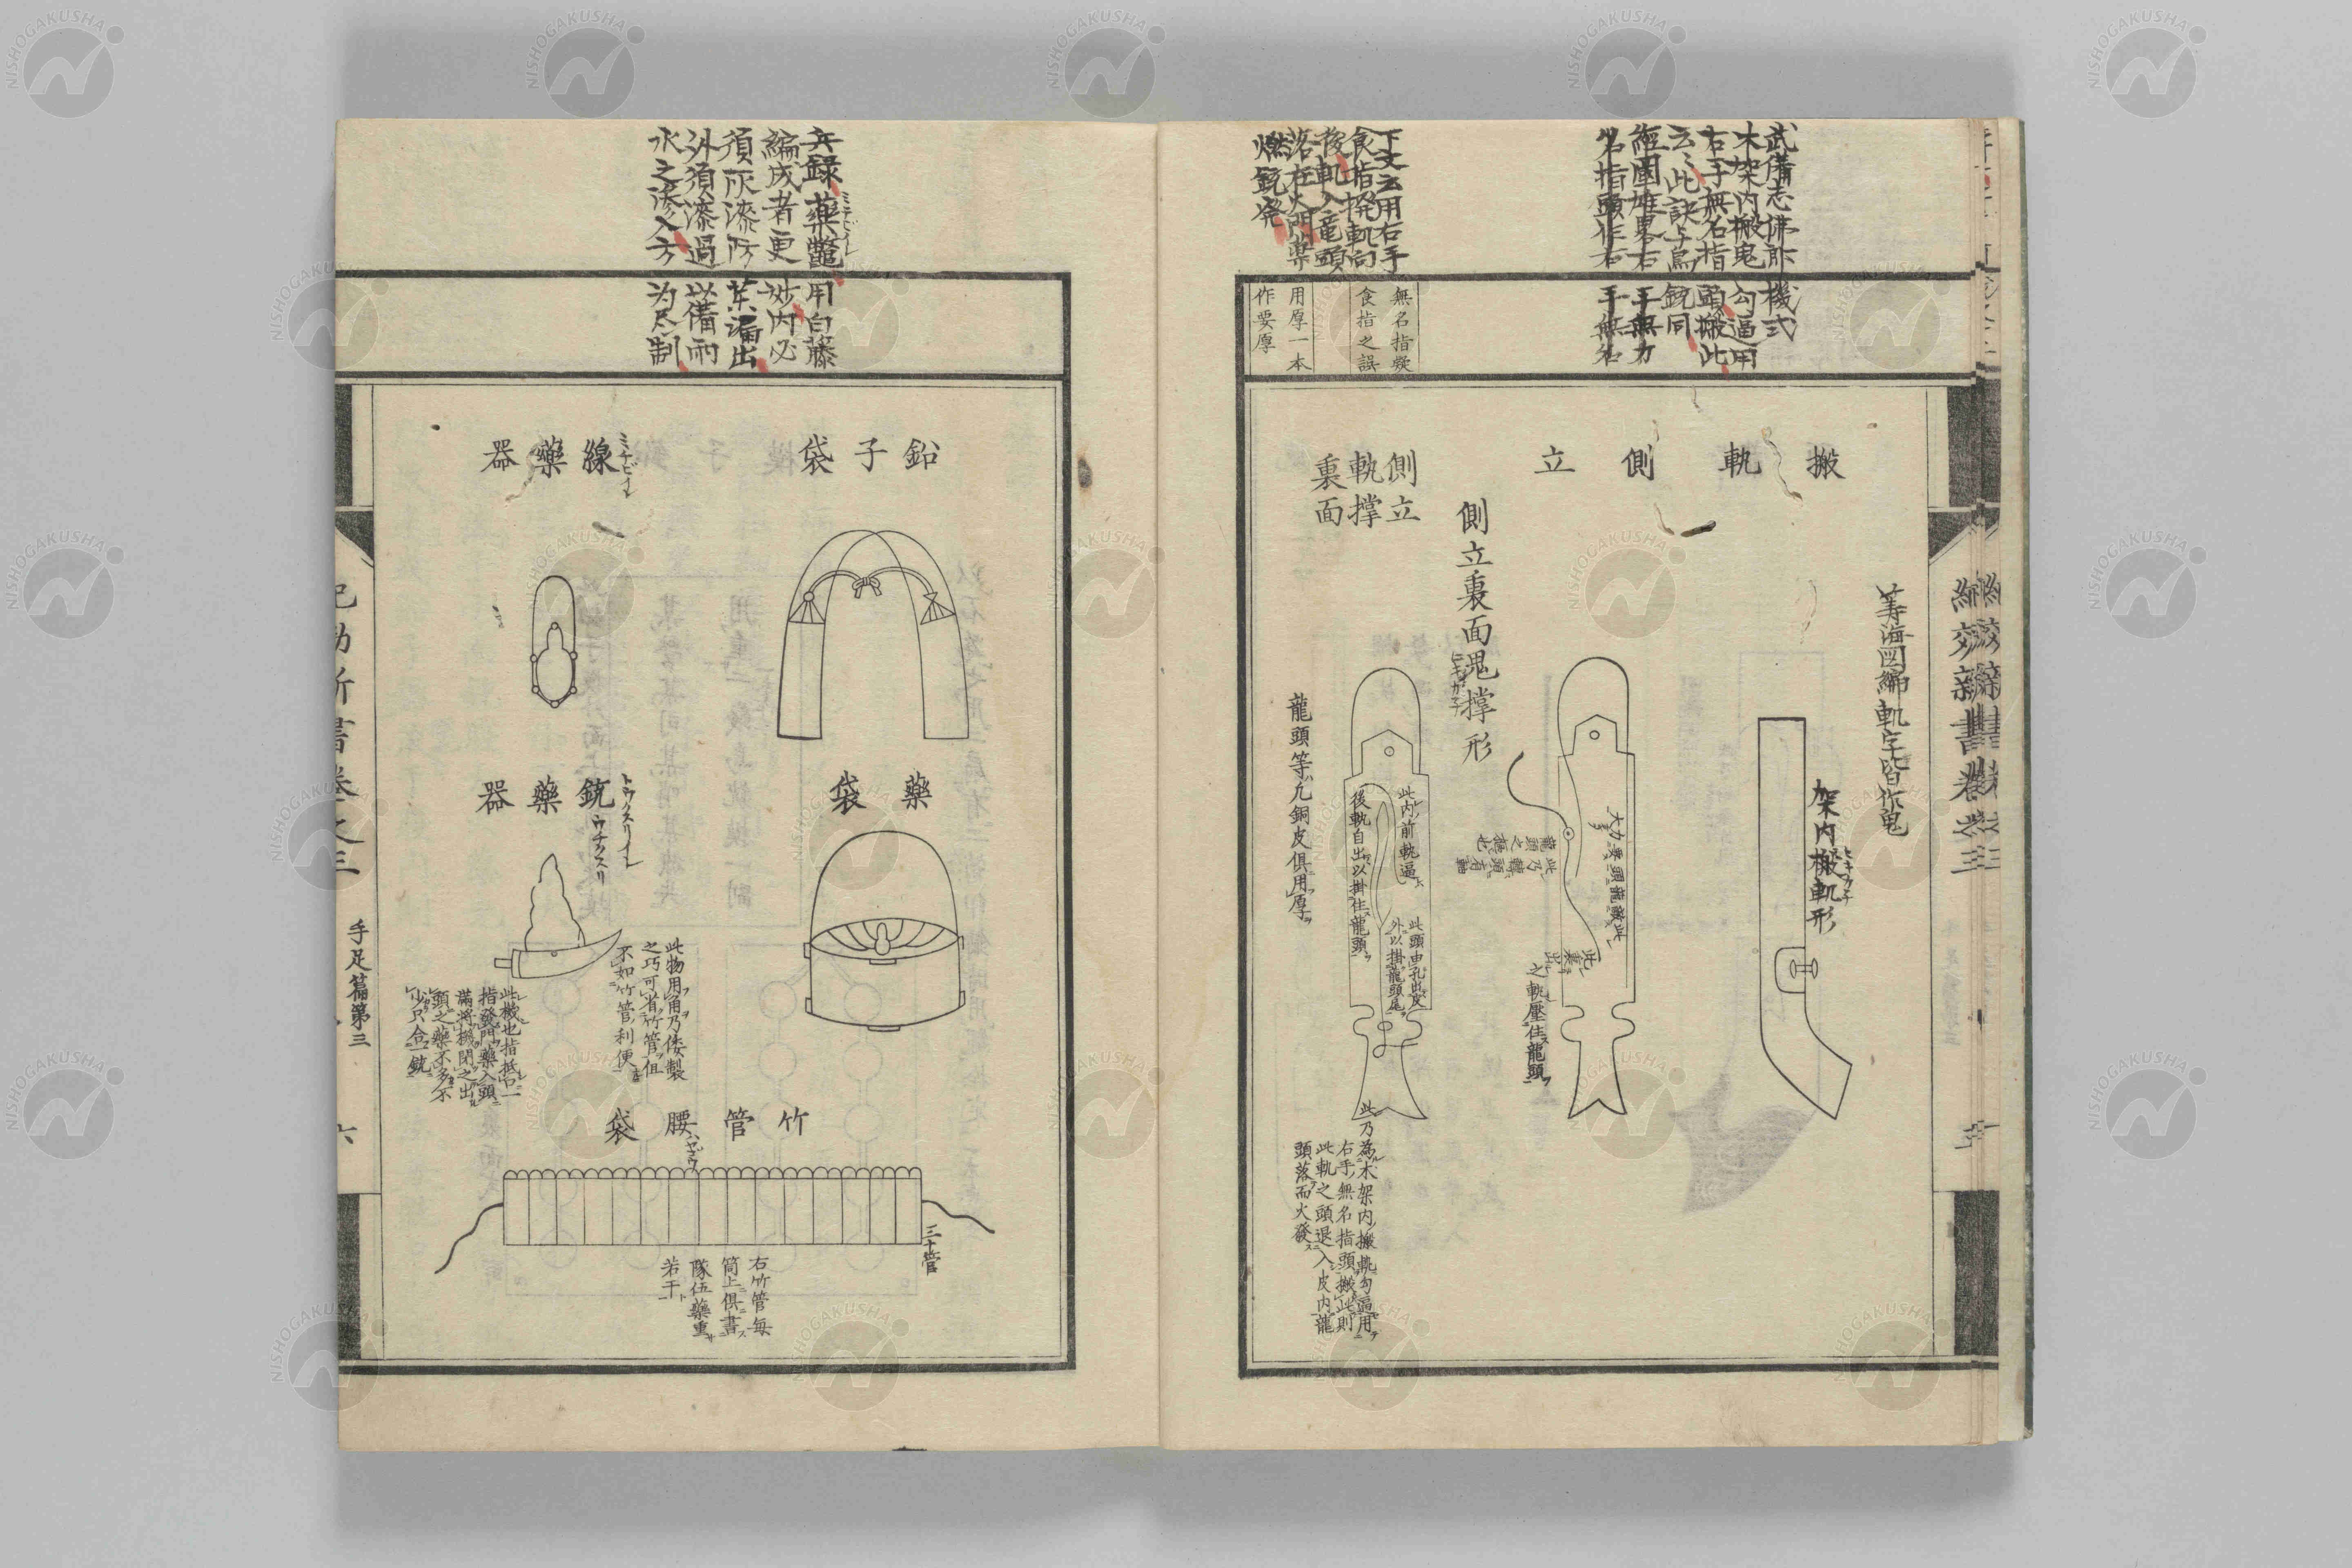 武備志佛郎機式
木架内搬鬼勾逼用
右手無名指頭搬此
云々此訣与鳥銃同
經國雄畧右手無力
名指頭作右手無名
下文云用右手
食指撥軌向
後軌入竜頭
落在火門藥
燃銃発
無名指疑
食指之誤
用厚一本
作要厚
籌海図編軌字皆作鬼
搬軌側立
架内搬軌形
ヒキカネ
大力要頭龍識此
此乃龍頭有軸
龍頭之梔也
此裏出
之軌壓住龍頭
側立裏面鬼撑形
側立
軌撑
裏面
此内前軌逼
後軌自出以掛住龍頭
此頭由孔出皮
外以掛龍頭尾
龍頭等尤銅皮俱用厚
此乃為木架内搬軌勾逼用
右手無名指頭搬此則
此軌之頭退入皮内龍
頭落而火發
紀効新書卷之三
五
兵録藥鼈用白籐
ミチビイレ
編成者更妙内必
須灰漆防藥漏出
外須漆過以備雨
水之滲入方为尽制
鉛子袋
線藥器
ミチビイレ
藥袋
銃藥器
トウクスリイレ
ウチクスリ
此物用角乃倭製
之巧可省竹管但
不如竹管利便
此機也指抵口一
指發門藥入頭
滿將機閉之出
頭之藥不多不
少只合一銃
竹管腰袋
三十管
右竹管每
筒上俱書
隊伍藥重
若干
紀効新書卷之三
手足篇第三
六